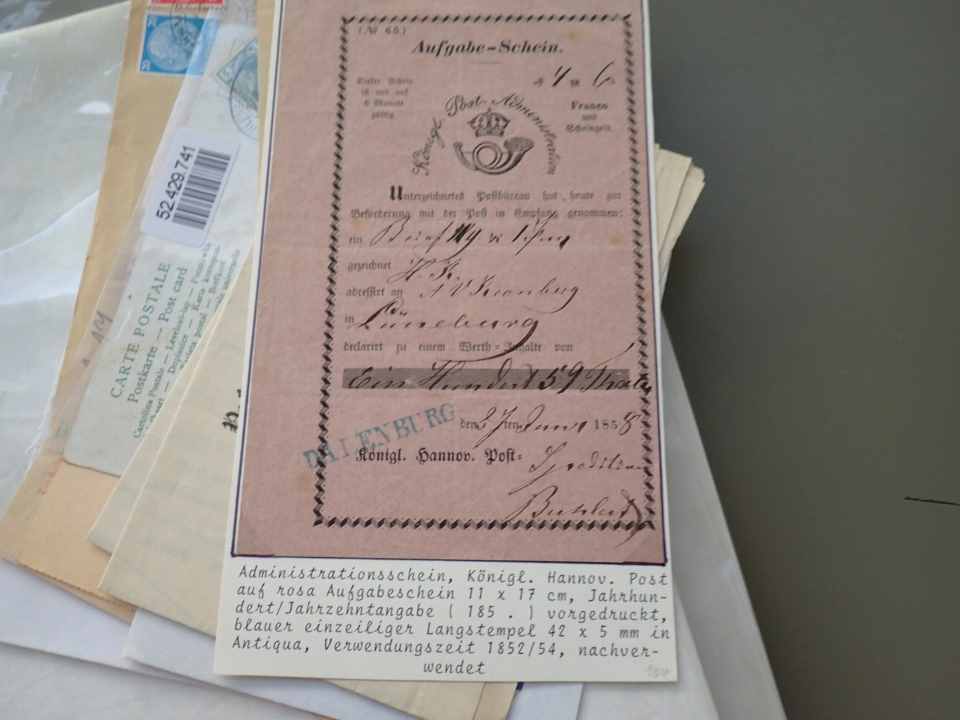 (№ 65.)
Aufgabe-Schein.
4 6
Dieser Schein
ist nur auf
6 Monate
gültig.
Franco
und
Scheingeb.
Königl. Post-Administration
Unterzeichnetes Postbüreau hat heute zur
Beförderung mit der Post in Empfang genommen:
ein Brief
gezeichnet H. K.
adressirt an
in Lüneburg
declarirt zu einem Werth-Inhalte von
Ein Hundert 59 Thaler
DALENBURG
den 27ten Juni 1858
Königl. Hannov. Post- Spedition
Administrationsschein, Königl. Hannov. Post
auf rosa Aufgabeschein 11 x 17 cm, Jahrhun-
dert/Jahrzehntangabe ( 185 . ) vorgedruckt,
blauer einzeiliger Langstempel 42 x 5 mm in
Antiqua, Verwendungszeit 1852/54, nachver-
wendet
52.429.741
CARTE POSTALE
Postkarte — Post card